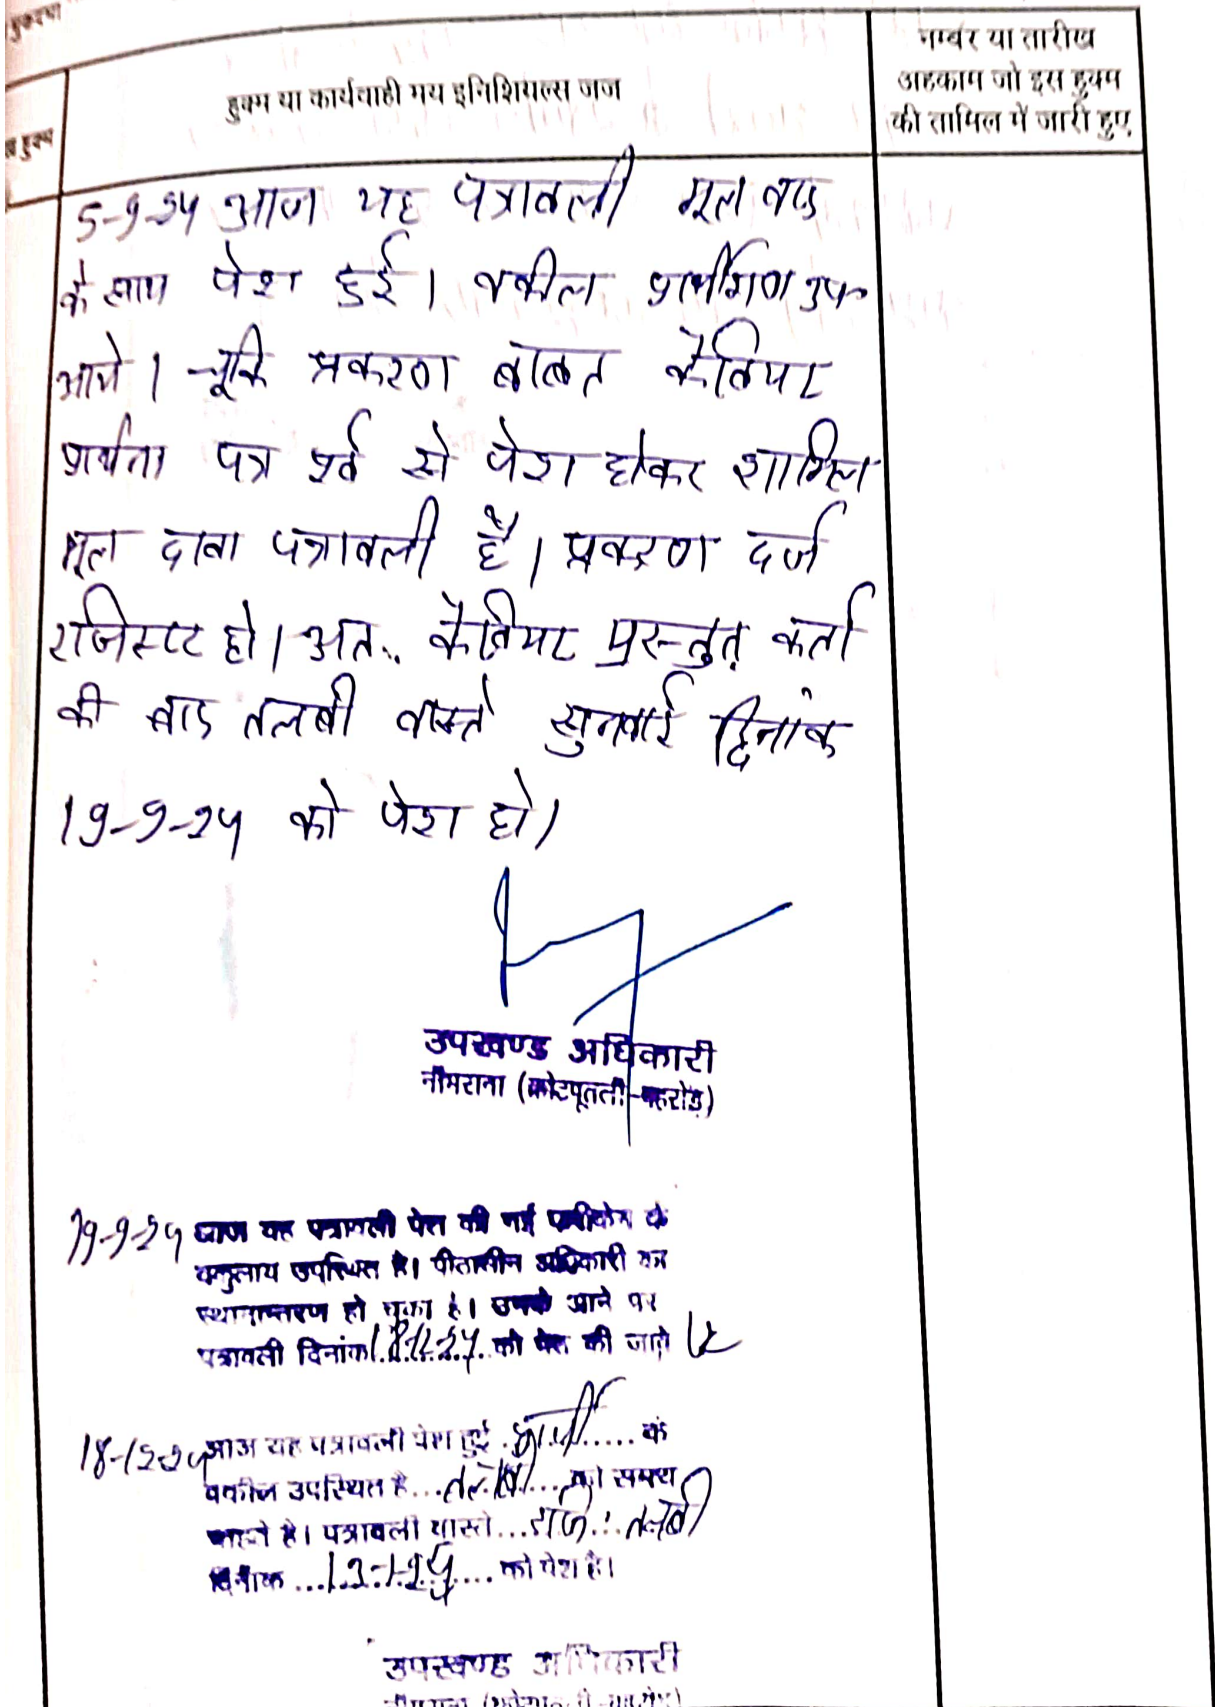 हुक्म या कार्यवाही मय इनिशियल्स जज
नम्बर या तारीख
अहकाम जो इस हुक्म
की तामिल में जारी हुए
हुक्म
5-9-24 आज यह पत्रावली मूल वाद
के साथ पेश हुई। वकील प्रार्थीगण उप०
आये। चूकि प्रकरण बाबत केवियट
प्रार्थना पत्र पूर्व से पेश होकर शामिल
मूल दावा पत्रावली है। प्रकरण दर्ज
रजिस्टर हो। अतः केवियट प्रस्तुत कर्ता
की बाद तलबी वास्ते सुनवाई दिनांक
19-9-24 को पेश हो।
उपखण्ड अधिकारी
नीमराना (कोटपूतली-बहरोड़)
19-9-24 आज यह पत्रावली पेश की गई के
उपस्थित है। पीठासीन अधिकारी का
स्थानान्तरण हो चुका है। उनके आने पर
पत्रावली दिनांक 18.12.24 को पेश की जावे
18-12-24 आज यह पत्रावली पेश हुई प्रार्थी के
वकील उपस्थित है... तलबी ...को समय
चाहते है। पत्रावली वास्ते... तलबी
दिनांक ... को पेश है।
उपखण्ड अधिकारी